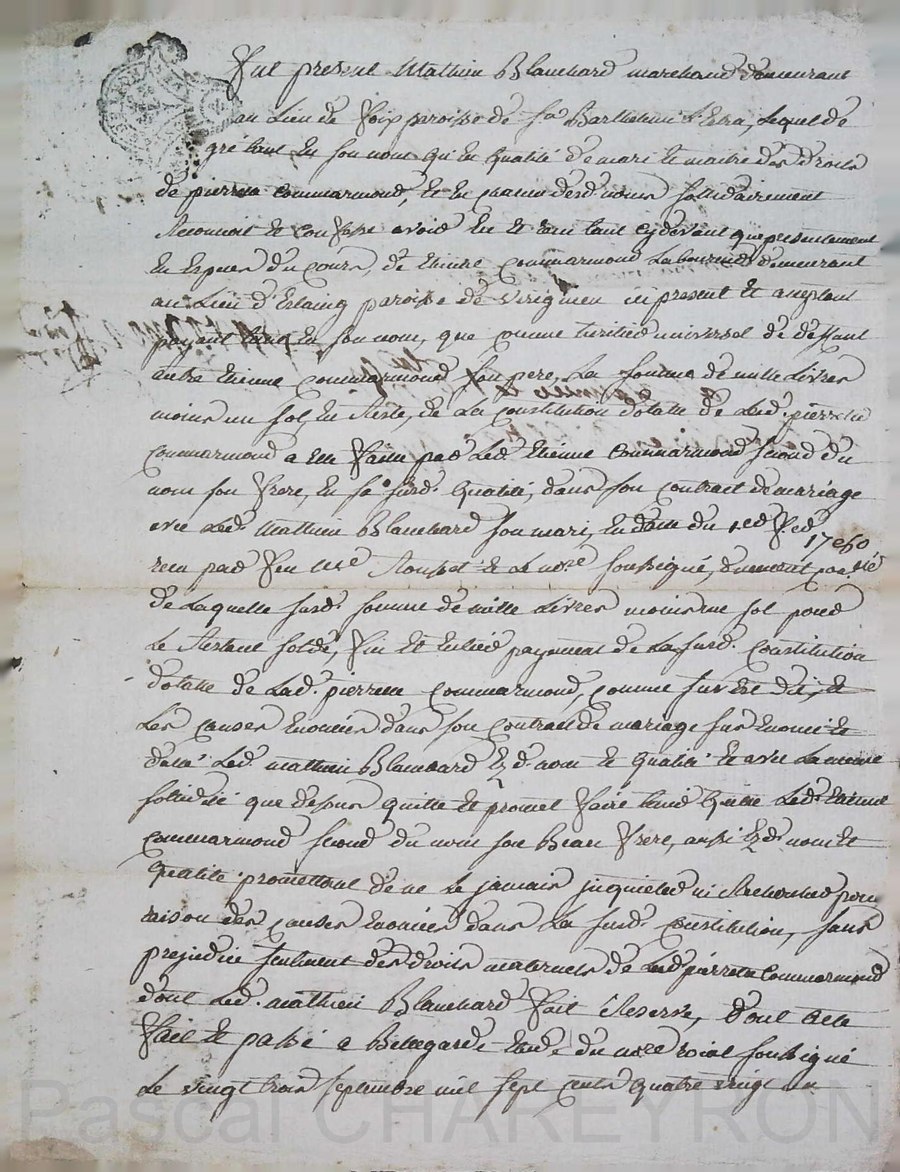 Fut present Mathieu Blanchard marchand demeurant
au Lieu de Foix paroisse de St Barthelemi L'Estra, Lequel de
gré tant En son nom qu'En qualité de mari Et maitre des droits
de pierrete Commarmond, Et En chacun desd. noms sollidairement
Reconnoit Et confesse avoir Eu Et recu tant cy devant que presentement
En Espèces du cours, de Etienne Commarmond Laboureur demeurant
au Lieu d' paroisse de Virigneu ici present Et aceptant
payant tant En son nom, que comme heritier universel de deffunt
autre Etienne Commarmond son pere, La somme de mille Livres
moins un sol, En Reste, de La Constitution dotale de Lad. pierrete
Commarmond a Elle faitte par Led. Etienne Commarmond second du
nom son frere, En sa susd. qualité, dans son contrait de mariage
avec Led. Mathieu Blanchard son mari, En datte du
1760
recu par feu me Et Le nore soussigné, duement
de Laquelle susd. somme de mille Livres moins un sol pour
Le Restant solde, fin Et Entier payement de La susd. Constitution
dotale de Lad. pierrete Commarmond, comme sus Est dit, Et
Les causes Enoncées dans son contrait de mariage sus Enoncé Et
datté Led. mathieu Blanchard Ezd. nom Et qualité Et avec La meme
solidité que dessus quitte Et promet faire tenir quitte Led. Etienne
Commarmond second du nom son Beau frere, aussi Ezd. nom Et
qualité promettant de ne Le jamais inquieter ni Rechercher pour
raison des causes Enoncées dans La susd. Constitution, sans
prejudice seulement des droits maternels de Lad. pierrete Commarmond
dont Led. mathieu Blanchard fait Reserve, dont acte
fait Et passé a Belegarde Etude du nore roial soussigné
Le vingt trois septembre mil sept cents quatre vingt un
Pascal CHAREYRON